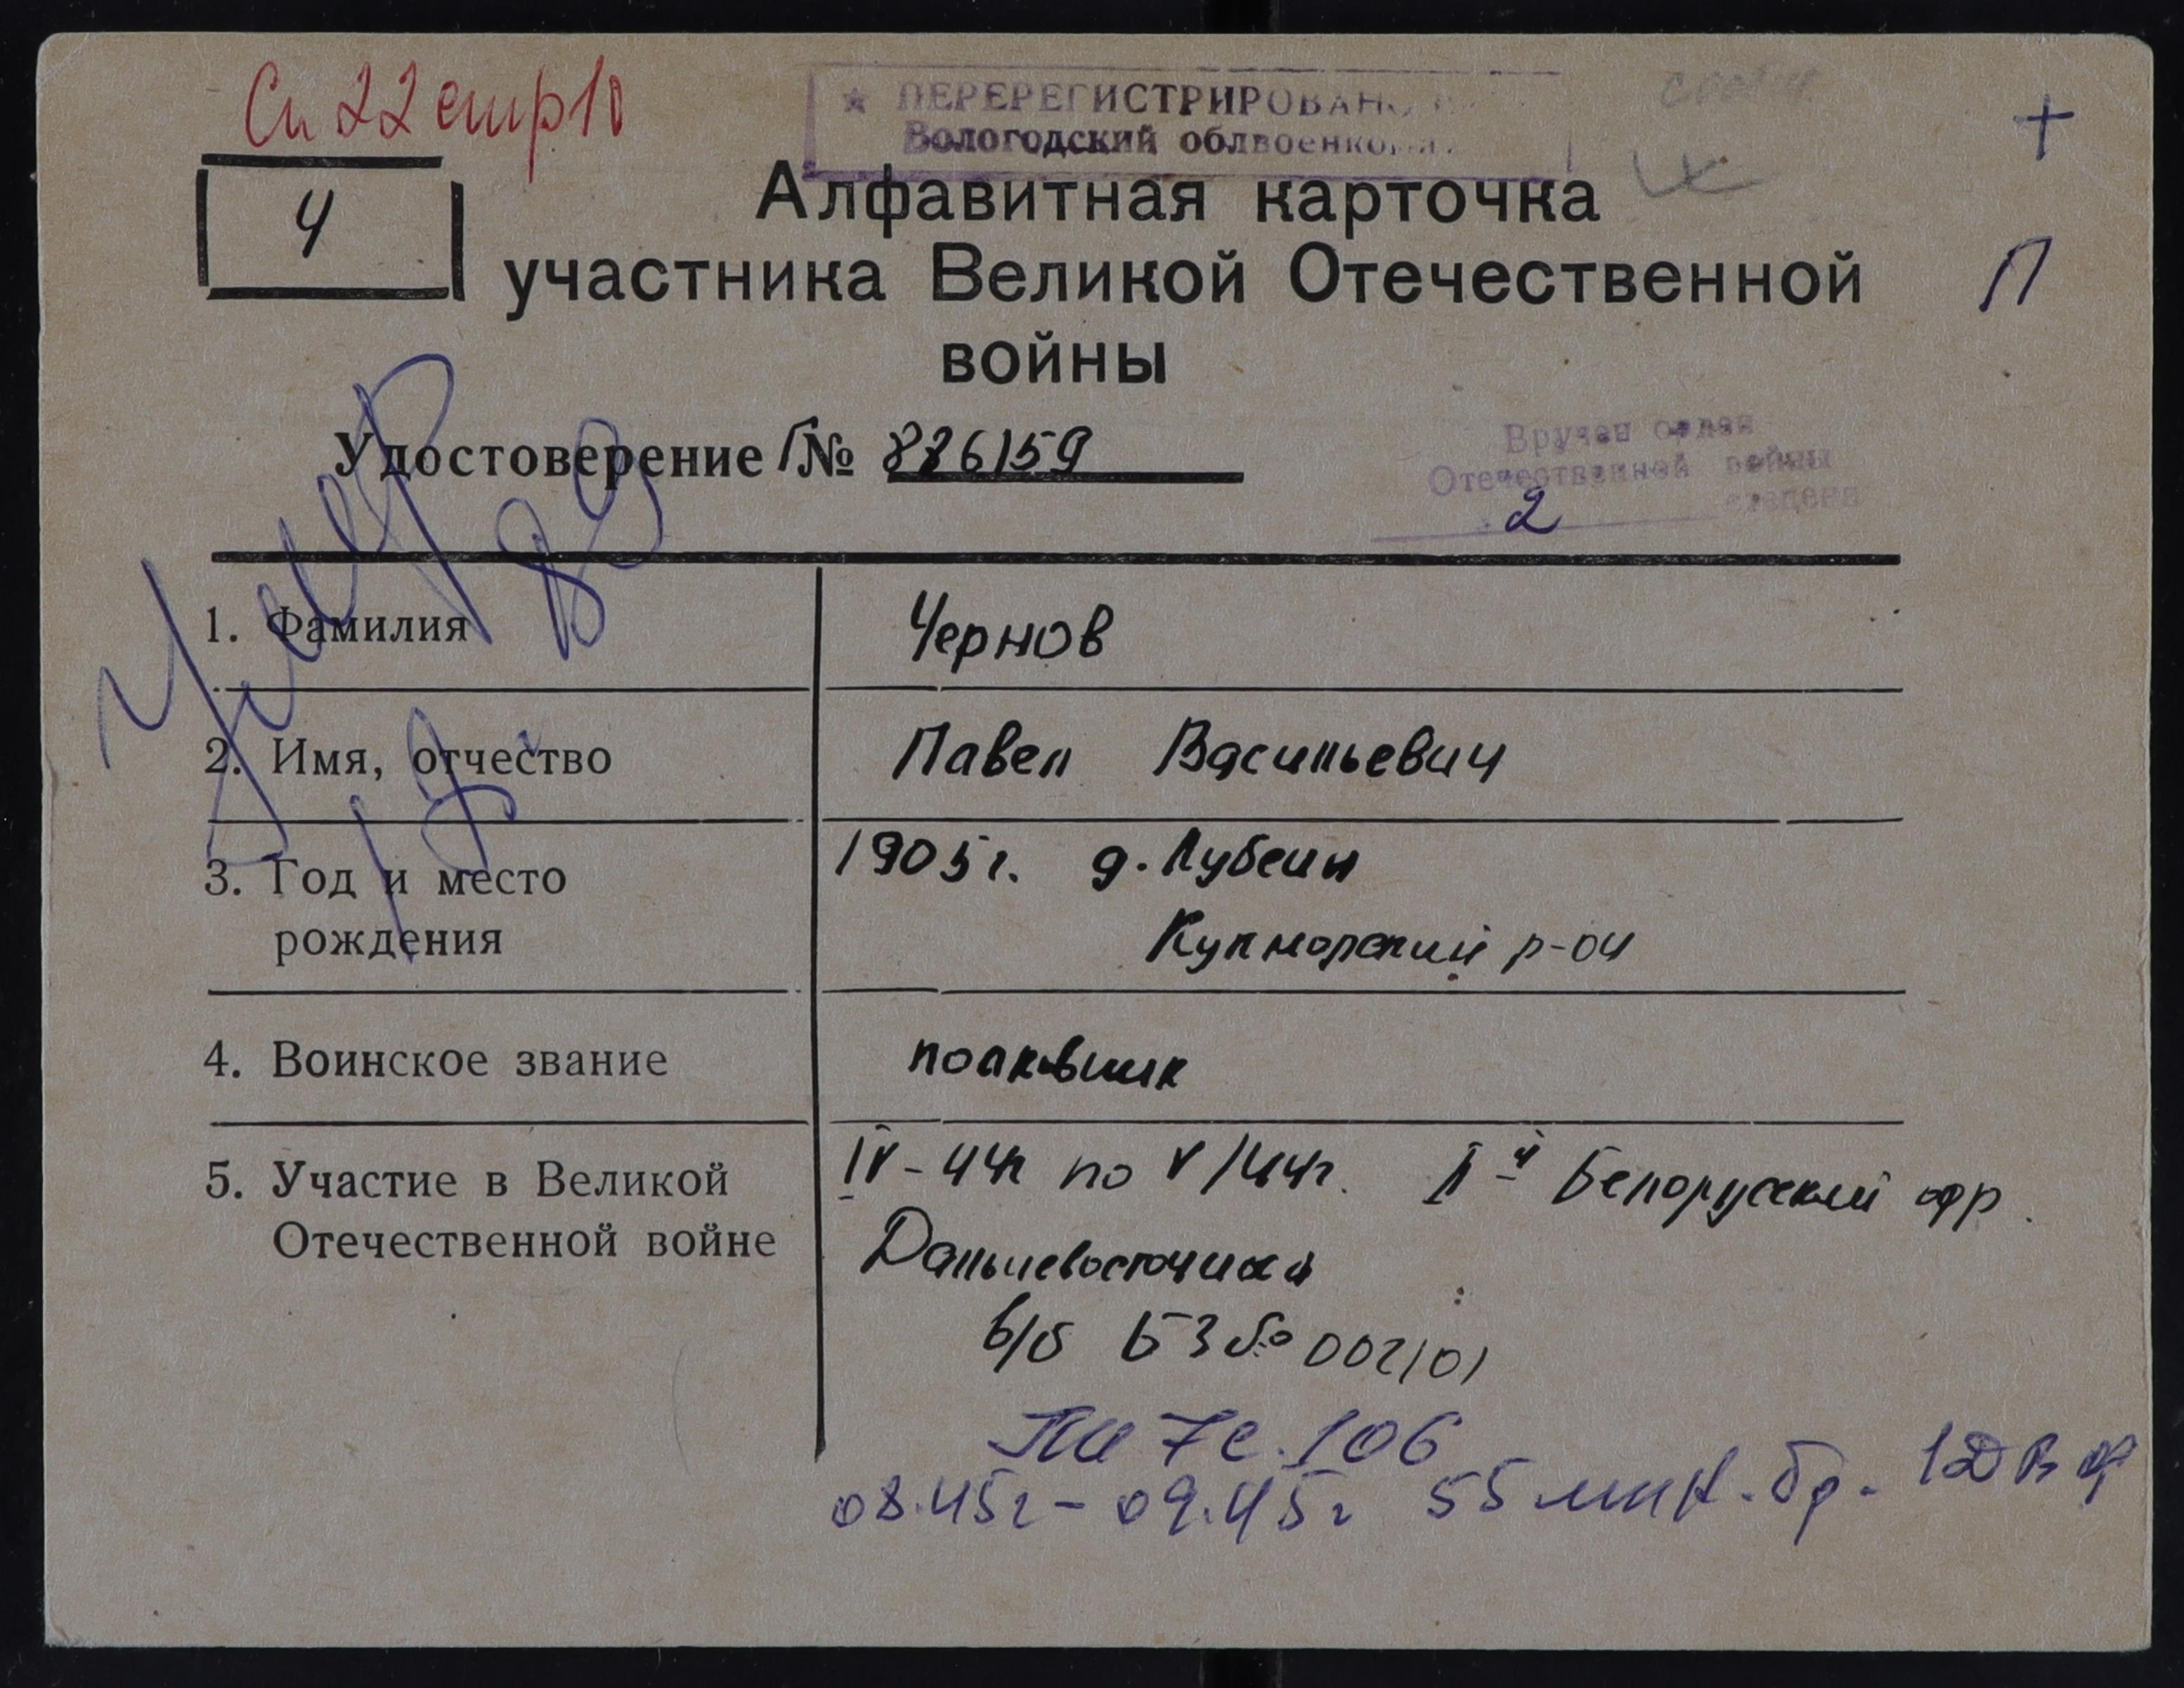 Сп 22 стр 10
★ ПЕРЕРЕГИСТРИРОВАНО
Вологодский облвоенком
+
Ч
П
Алфавитная карточка
участника Великой Отечественной
войны
Удостоверение Г№ 886159
Вручен орден
Отечественной войны
2 степени
Умер
89
1. Фамилия Чернов
2. Имя, отчество Павел Васильевич
3. Год и место 1905г. д. Лубеин
рождения Кукморский р-он
4. Воинское звание полковник
5. Участие в Великой IV-44г по V/44г. II й Белорусский фр.
Отечественной войне Дальневосточная
в/б БЗ № 002101
Пи 7 с. 106
08.45г - 09.45г 55 мин. бр. 1ДВФ